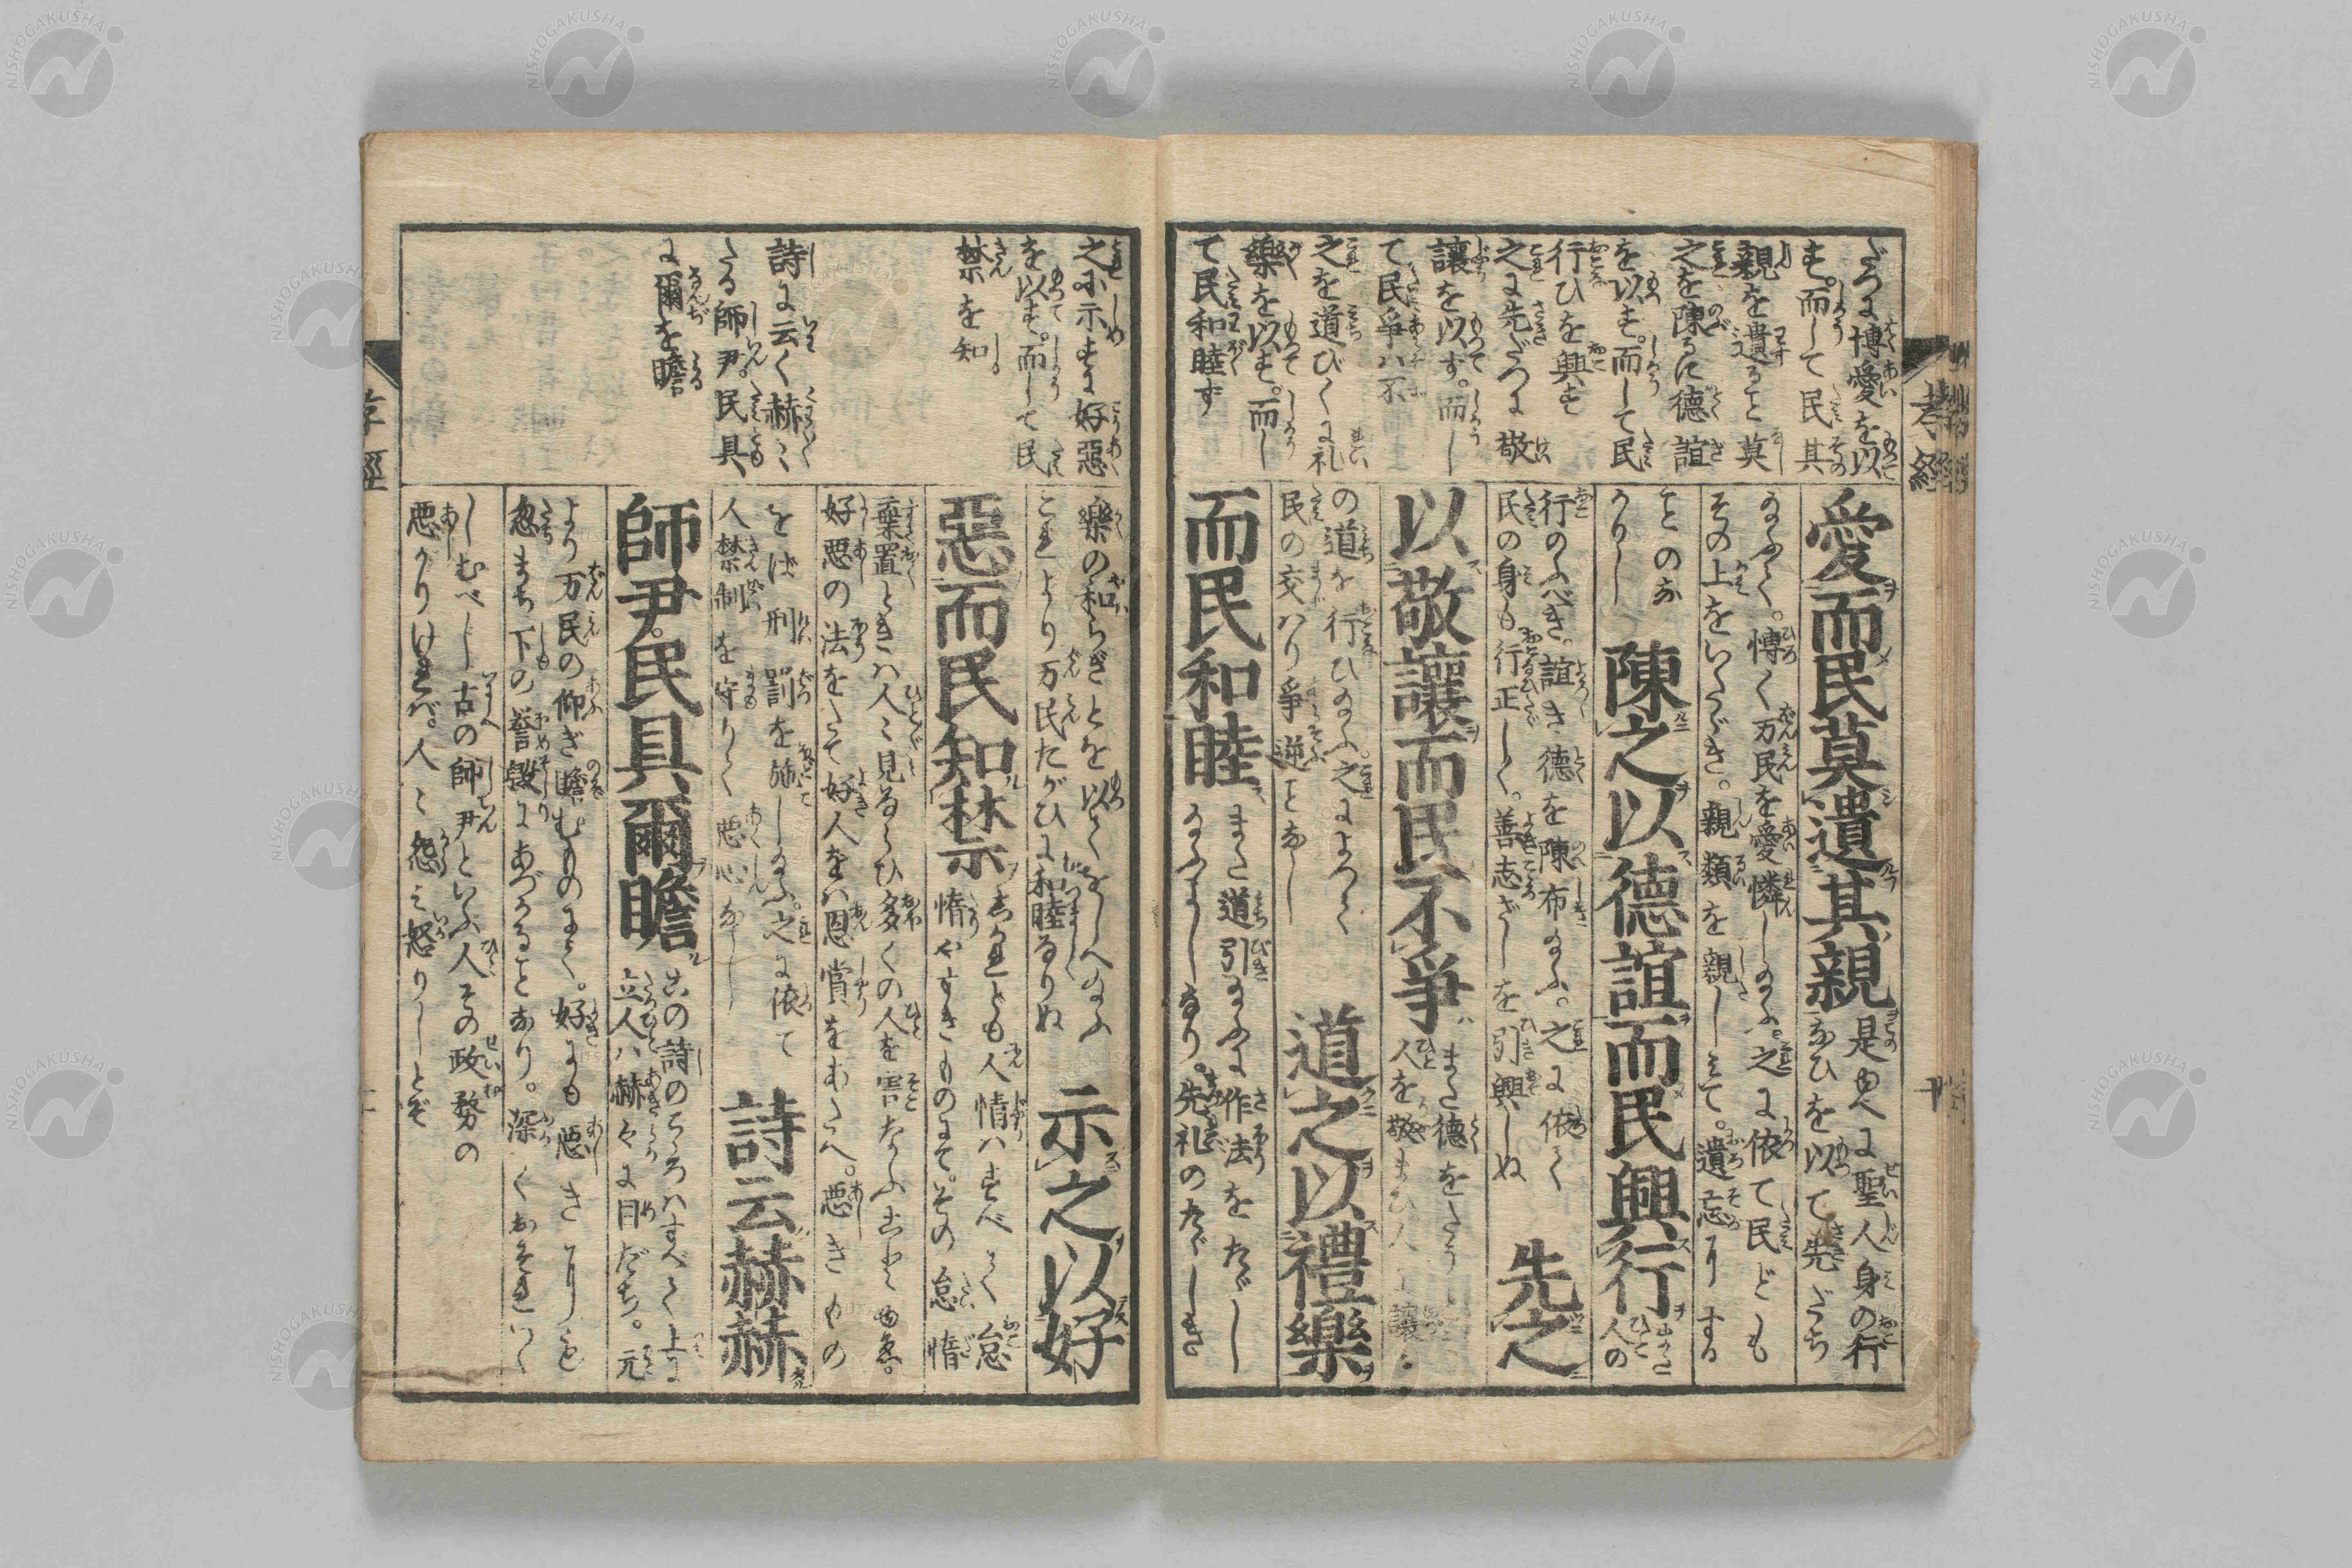 だつに博愛を以
す。而して民其
親を遺るゝこと莫
之を陳るに德誼
を以す。而して民
行ひを興す
之に先だつに敬
讓を以す。而し
て民爭ハ不
之を道びくに礼
樂を以す。而し
て民和睦ず
愛而民莫遺其親
是ゆへに聖人身の行
なひを以て先だち
給ふて。博く万民を愛憐し給ふ。之に依て民ども
その上をいたゞき。親類を親しみて。遺忘りする
ことのな
かりし
陳之以德誼而民興行
人の
行のふべき。誼き德を陳布給ふ。之に依て
民の身も行正しく。善志ざしを引興しぬ
先之
以敬讓而民不爭
また德を
人を敬まひ人に讓る
の道を行ひ給ふ。之によつて
民の交ハり爭逆ことなし
道之以禮樂
而民和睦
また道引給ふに作法をたゞし
給ふなり。先礼のたゞしき
之に示すに好惡
を以す。而して民
禁を知
詩に云く赫〻
たる師尹。民具
に爾を瞻
樂の和らぎとを以ておしへ給ふ
これより万民たがひに和睦なりぬ
示之以好
惡而民知禁
されども人情ハすべて怠
惰やすきものにて。その怠惰
棄置ときハ人〻見ならひ多くの人を害なふことゆゑ。
好惡の法をたて好人をハ恩賞をあたへ。惡きもの
をば刑罰を施し給ふ。之に依て
人禁制を守りて惡心なし
詩云赫赫
師尹。民具爾瞻
この詩のこゝろハすべて上に
立人ハ赫々に目だち。元
より万民の仰ぎ瞻むものにて。好にも惡きにしも
忽まち下の譽毀にあづかることなり。深くおそれつゝ
しむべし古の師尹といふ人その政務の
惡かりければ。人〻怨ミ怒りしとぞ
孝經
十
孝經